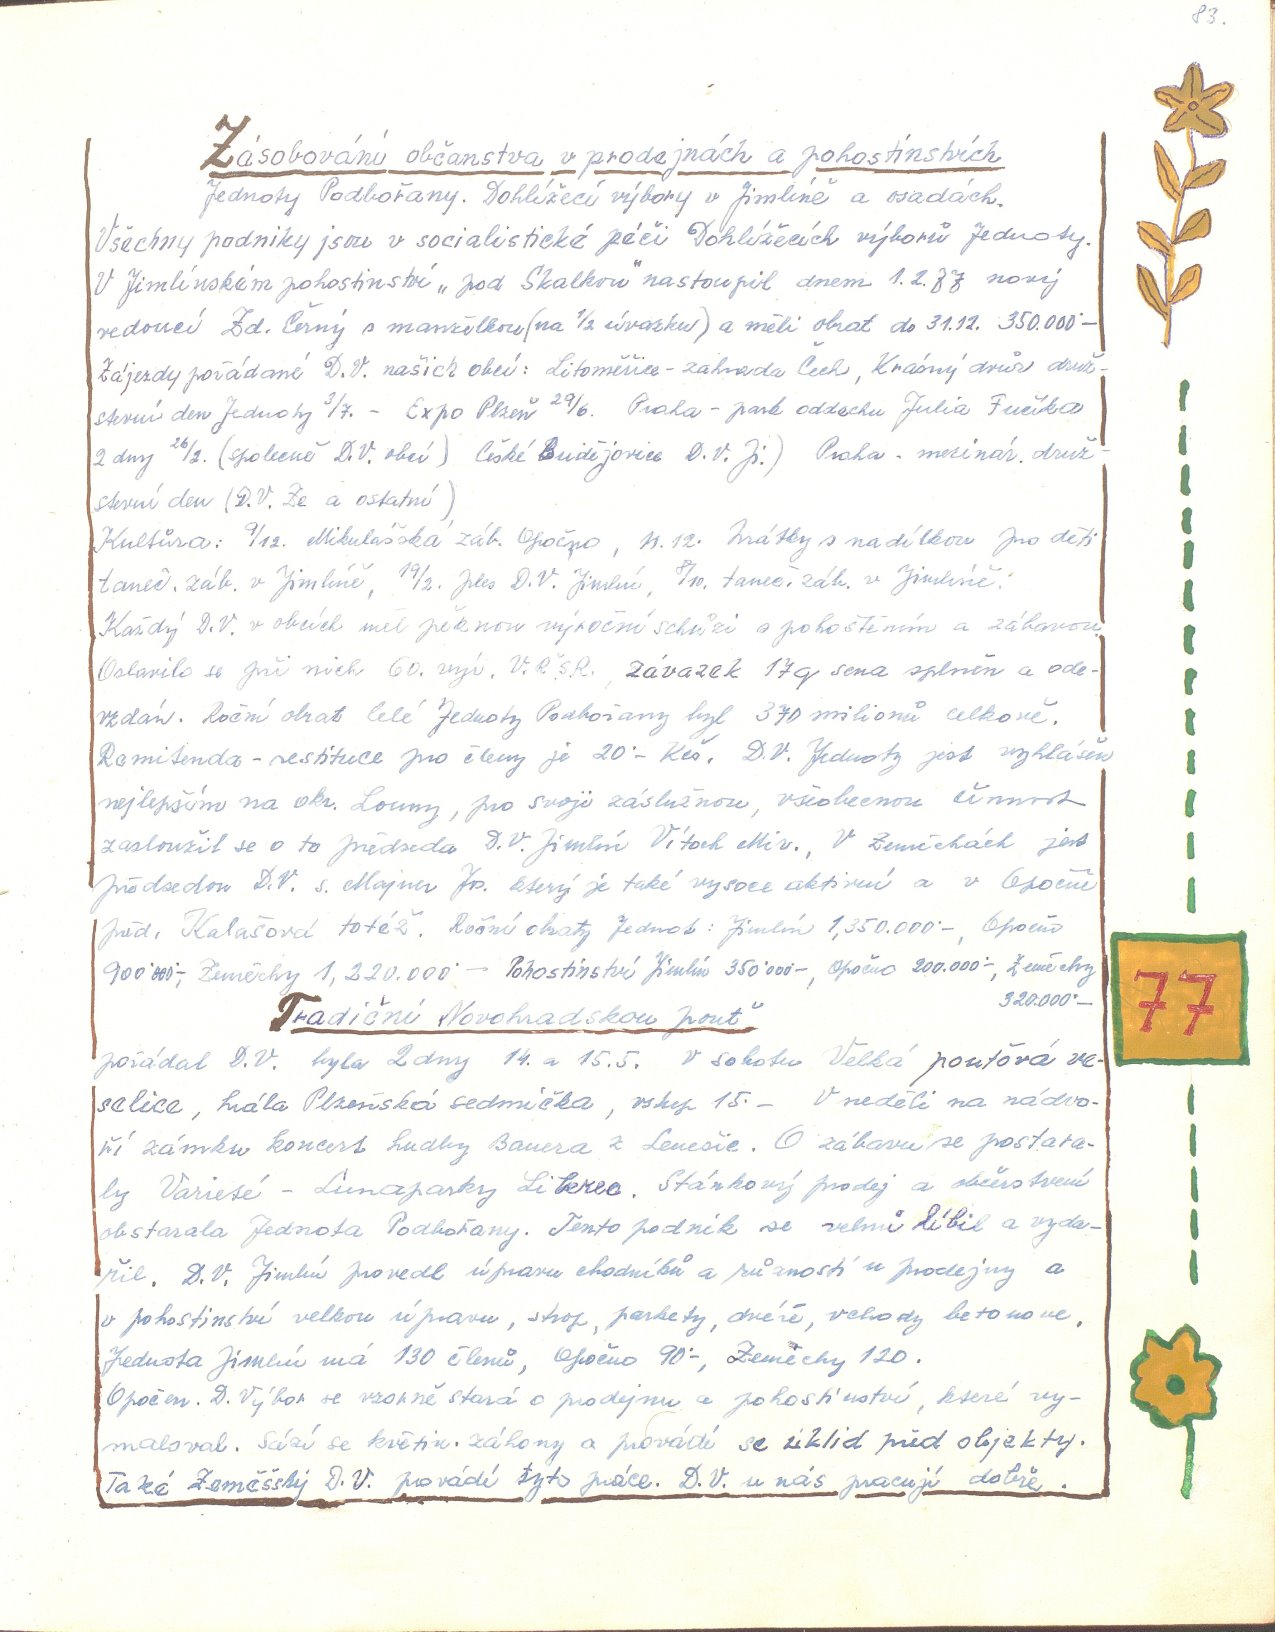 83.
Zásobování občanstva v prodejnách a pohostinstvích
Jednoty Podbořany. Dohlížecí výbory v Jimlíně a osadách.
Všechny podniky jsou v socialistické péči Dohlížecích výborů Jednoty.
V Jimlínském pohostinství „pod Skalkou" nastoupil dnem 1.2.77 nový
vedoucí Zd. Černý s manželkou (na 1/2 úvazku) a měli obrat do 31.12. 350.000·–
Zájezdy pořádané D.V. našich obcí: Litoměřice - zahrada Čech, Krásný dvůr druž-
stevní den Jednoty 3/7. – Expo Plzeň 29/6. Praha – park oddechu Julia Fučíka
2 dny 26/2. (společně D.V. obcí) České Budějovice D.V. Ji.) Praha - mezinár. druž-
stevní den (D.V. Ze a ostatní)
Kultůra: 9/12. Mikulášská záb. Opočno, 11.12. hrátky s nadílkou pro děti
taneč. záb. v Jimlíně, 19/2. ples D.V. Jimlín, 8/10. taneč. záb. v Jimlíně.
Každý D.V. v obcích měl pěknou výroční schůzi s pohoštěním a zábavou.
Oslavilo se při nich 60. výr. V.Ř.S.R. závazek 17q sena splněn a ode-
vzdán. Roční obrat celé Jednoty Podbořany byl 370 milionů celkově.
Remitenda - restituce pro členy je 20·– Kčs. D.V. Jednoty jest vyhlášen
nejlepším na okr. Louny, pro svoji záslužnou, všeobecnou činnost
zasloužil se o to předseda D.V. Jimlín Vítoch Mir., V Zeměchách jest
předsedou D.V. s. Majner Jos. který je také vysoce aktivní a v Opočně
před. Kalašová totéž. Roční obraty Jednot: Jimlín 1,350.000·–, Opočno
900·000·–, Zeměchy 1,220.000·– Pohostinství Jimlín 350·000·–, Opočno 200.000·–, Zeměchy
320.000·–
Tradiční Novohradskou pouť
pořádal D.V. byla 2 dny 14. a 15.5. V sobotu Velká pouťová ve-
selice, hrála Plzeňská sedmička, vstup 15.– V neděli na nádvo-
ří zámku koncert hudby Bauera z Lenešic. O zábavu se postara-
ly Varieté - Lunaparky Liberec. Stánkový prodej a občerstvení
obstarala Jednota Podbořany. Tento podnik se velmi líbil a vyda-
řil. D.V. Jimlín provedl úpravu chodníků a různosti u prodejny a
v pohostinství velkou úpravu, strop, parkety, dvéře, vchody betonove.
Jednota Jimlín má 130 členů, Opočno 90·–, Zeměchy 120.
Opočen. D.Výbor se vzorně stará o prodejnu a pohostinství, které vy-
maloval. Sází se květin. záhony a provádí se úklid před objekty.
Také Zeměšský D.V. povádí tyto práce. D.V. u nás pracují dobře.
77